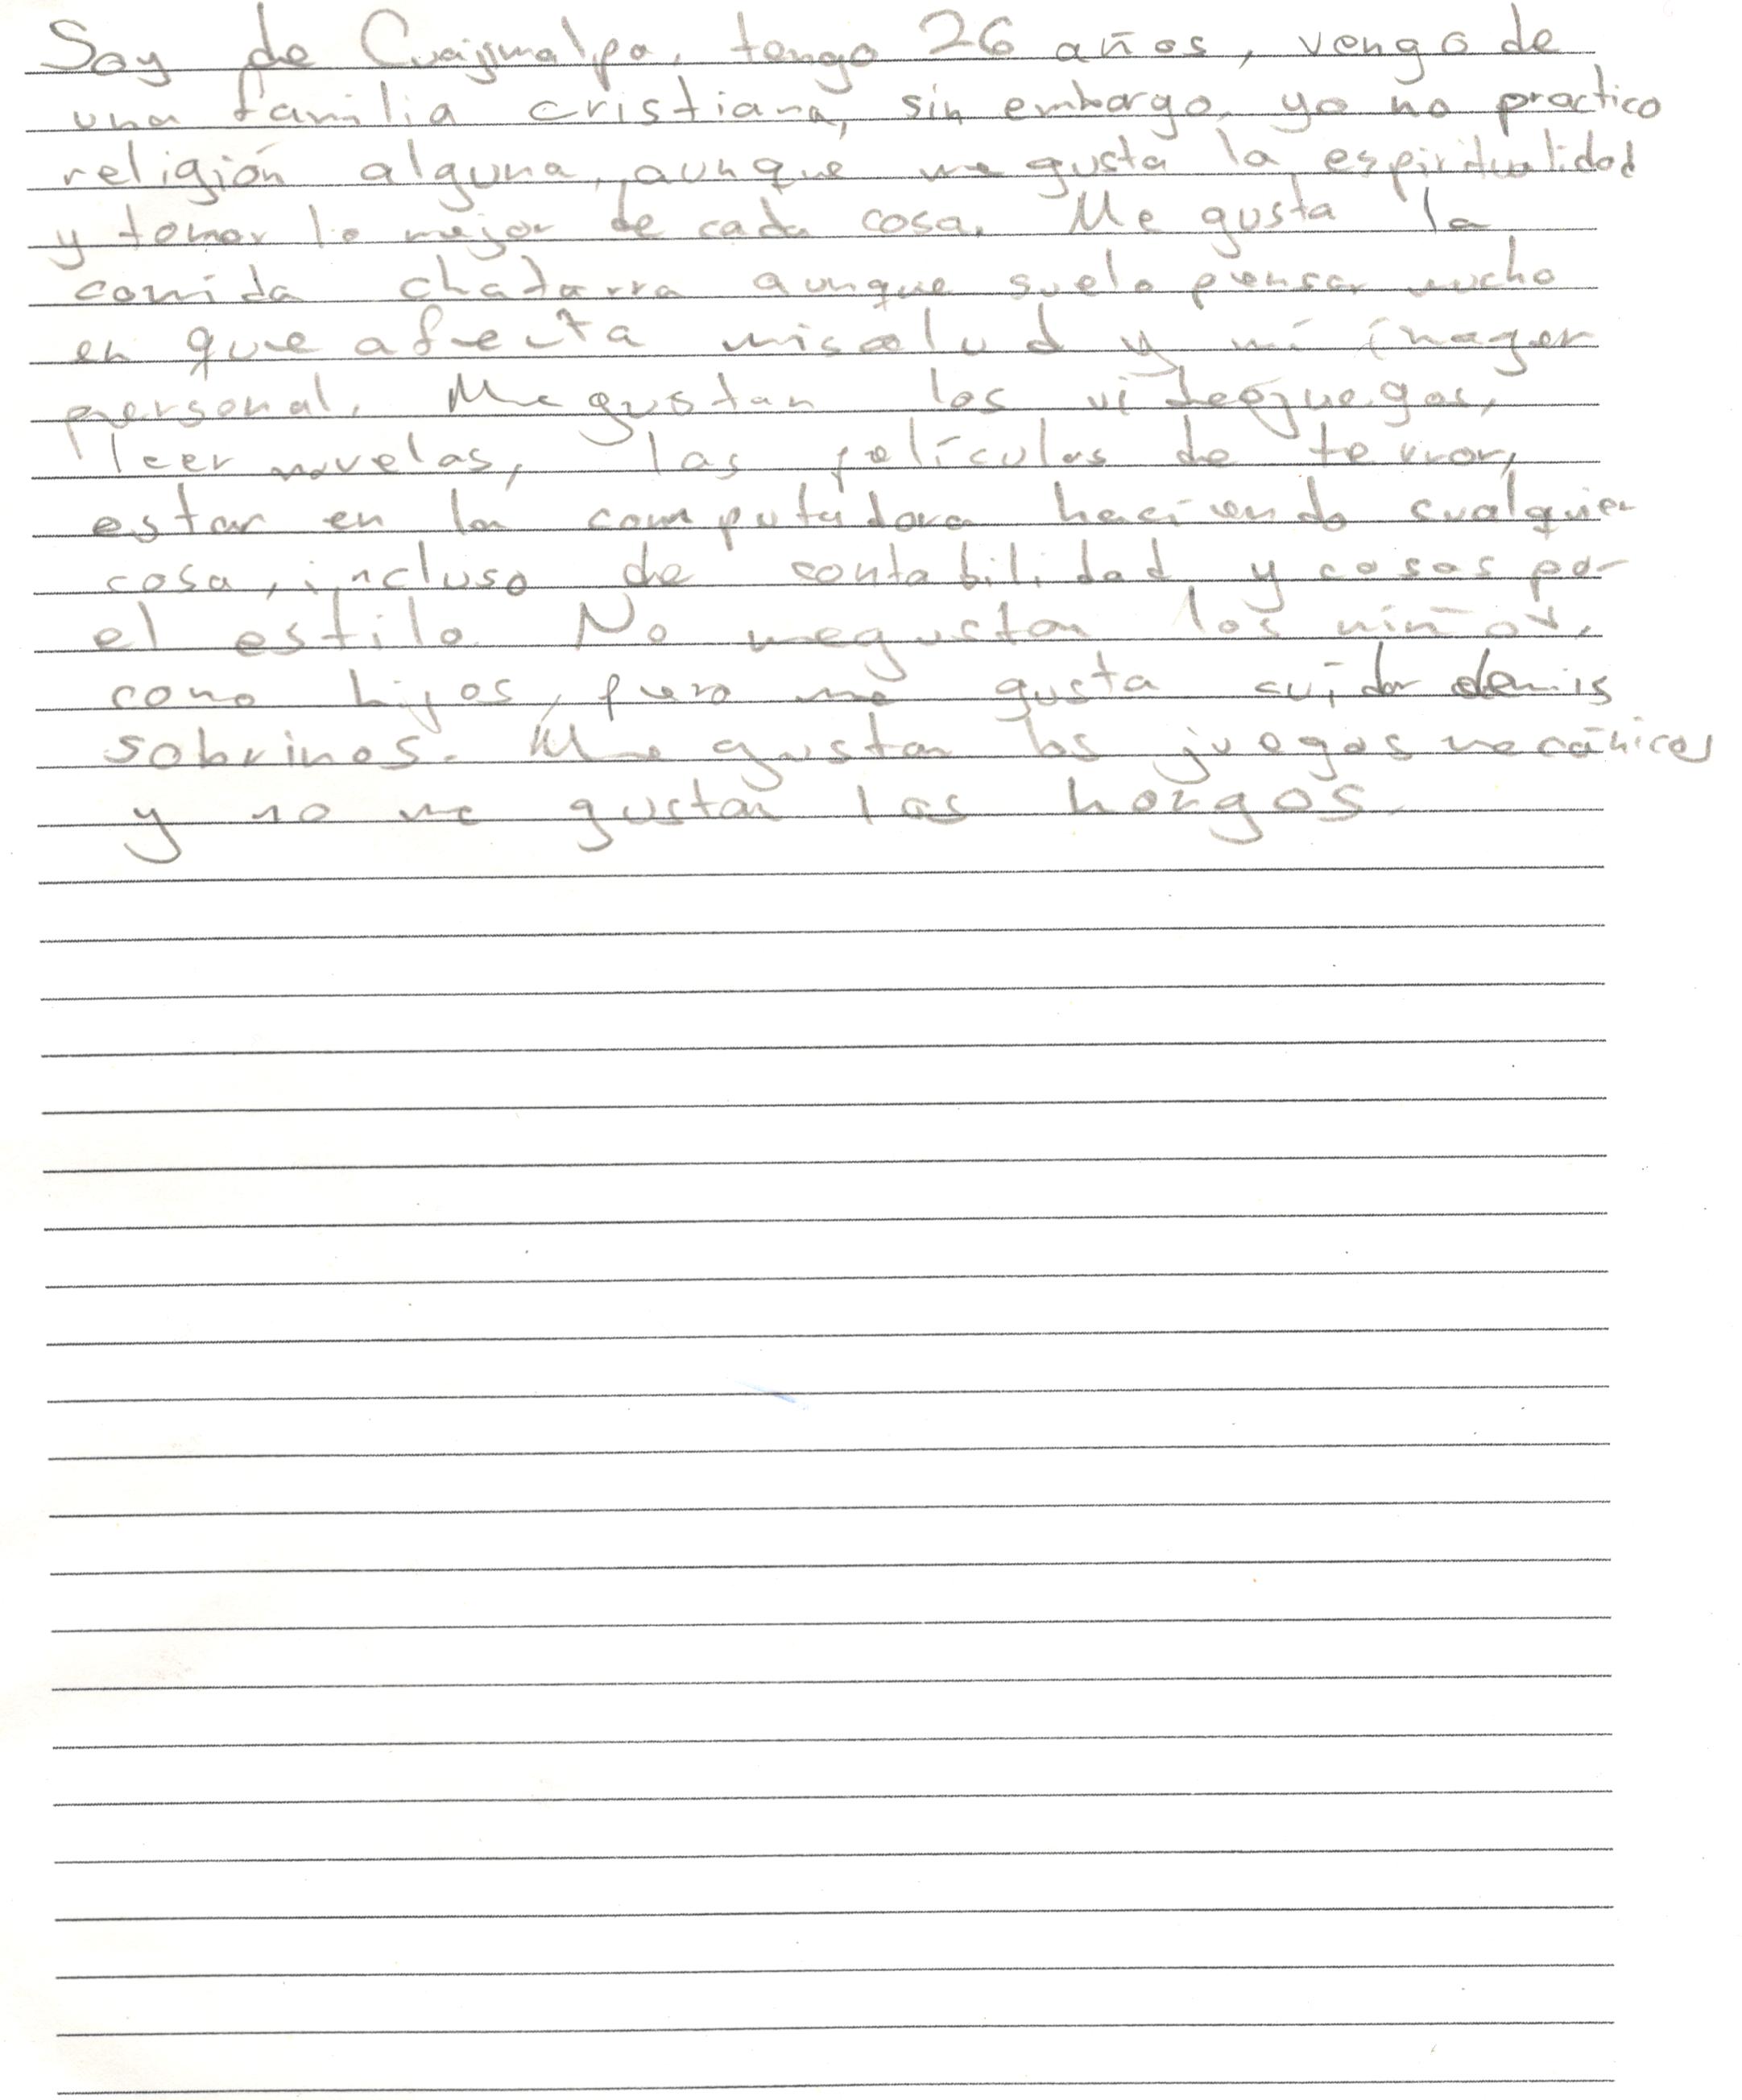 Soy de Cuajimalpa, tengo 26 años, vengo de
una familia cristiana, sin embargo, yo no practico
religión alguna, aunque me gusta la espiritualidad
y tomar lo mejor de cada cosa. Me gusta la
comida chatarra aunque suelo pensar mucho
en que afecta mi salud y mi imagen
personal. Me gustan los videojuegos,
leer novelas, las películas de terror,
estar en la computadora haciendo cualquier
cosa, incluso de contabilidad y cosas por
el estilo. No me gustan los niños,
como hijos, pero me gusta cuidar de mis
sobrinos. Me gustan los juegos mecánicos
y no me gustan los hongos.